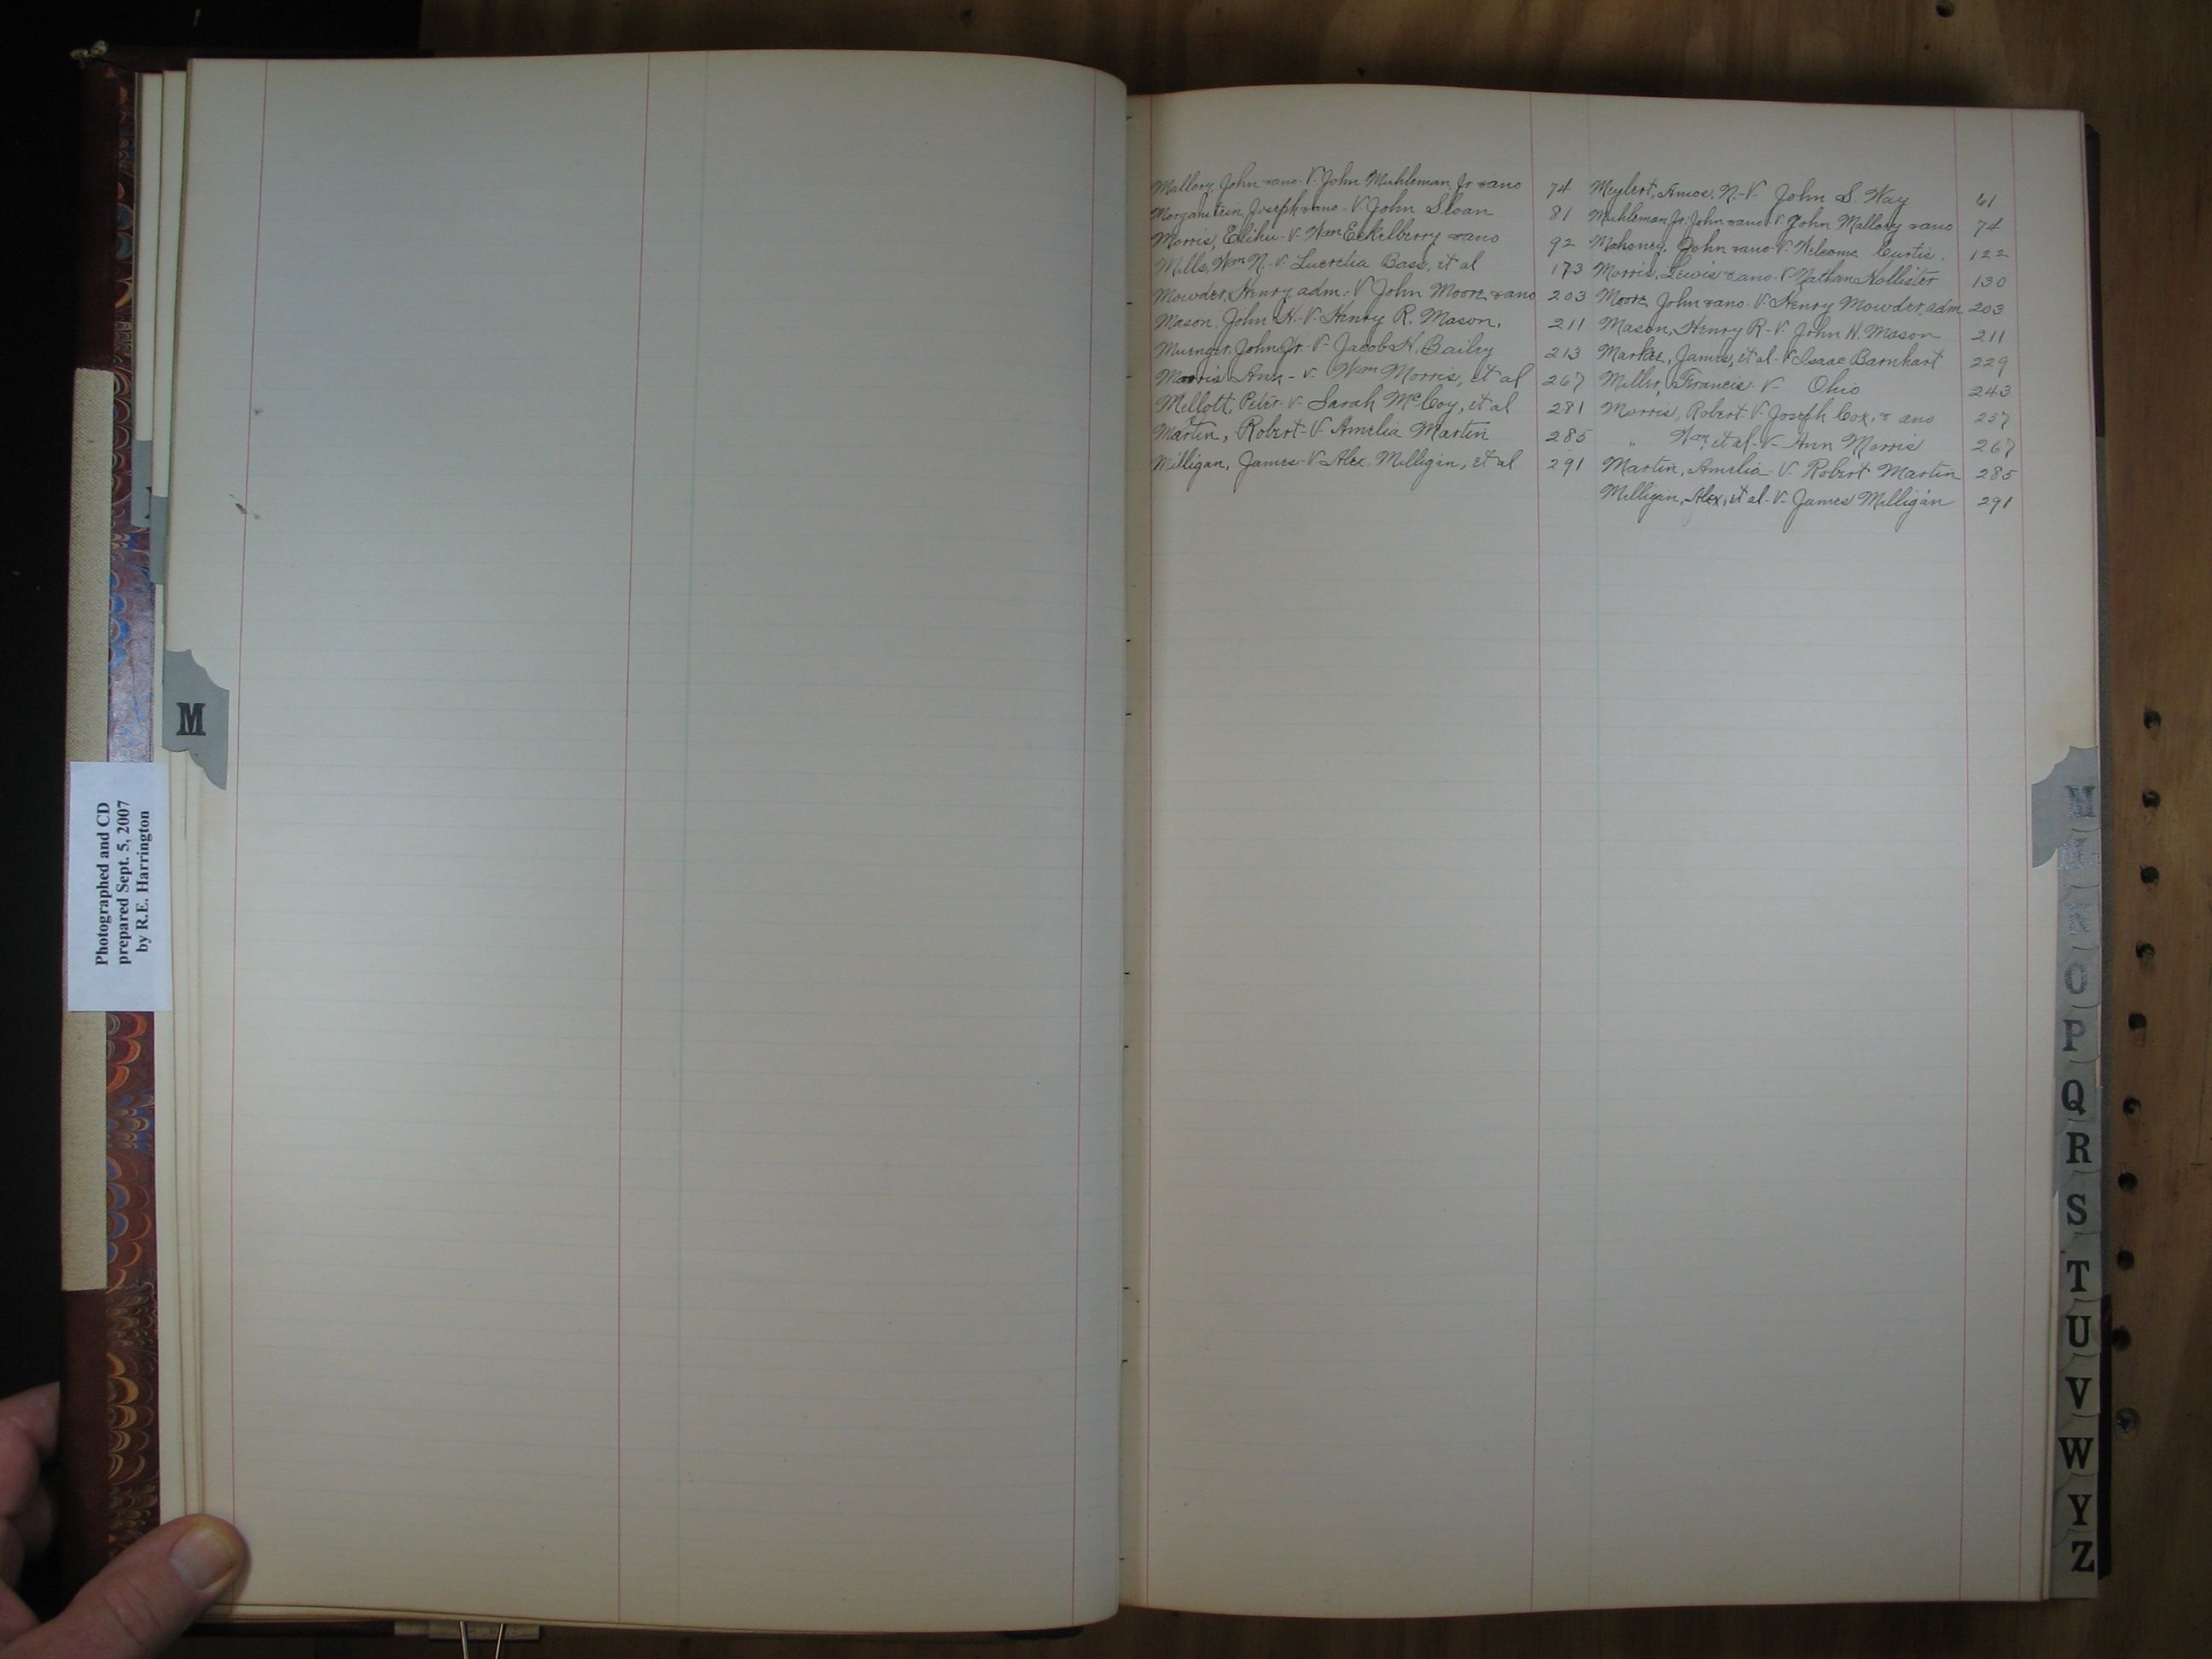 Mallory, John & ano. V. John Muhleman, Jr & ano 74
Morganstein, Joseph & ano. V. John Sloan 81
Morris, Elihu - V. Wm Eckelberry & ano 92
Mills, Wm N. - V. Lucretia Bass, et al 173
Mowder, Henry, adm. - V. John Moore & ano 203
Mason, John H. - V. Henry R. Mason. 211
John Jr. - V. Jacob H. Bailey 213
Morris Ann - V. Wm Morris, et al 267
Mellott, Peter - V. Sarah McCoy, et al 281
Martin, Robert - V. Amelia Martin 285
Milligan, James - V. Alex. Milligan, et al 291
Meylert, Amos, N. - V. John S. Way 61
Muhleman Jr. John & ano V. John Mallory & ano 74
Mahoney, John & ano - V. Welcome Curtis. 122
Morris, Lewis & ano. V. Nathan Hollister 130
Moore John & ano. V. Henry Mowder, adm 203
Mason, Henry R - V. John H. Mason 211
James, et al - V. Isaac Barnhart 229
Miller, Francis - V. Ohio 243
Morris, Robert - V. Joseph Cox, & ano 257
" Wm, et al - V. Ann Morris 267
Martin, Amelia - V. Robert Martin 285
Milligan, Alex, et al - V. James Milligan 291
M
Photographed and CD
prepared Sept. 5, 2007
by R.E. Harrington
M
O
P
Q
R
S
T
U
V
W
Y
Z